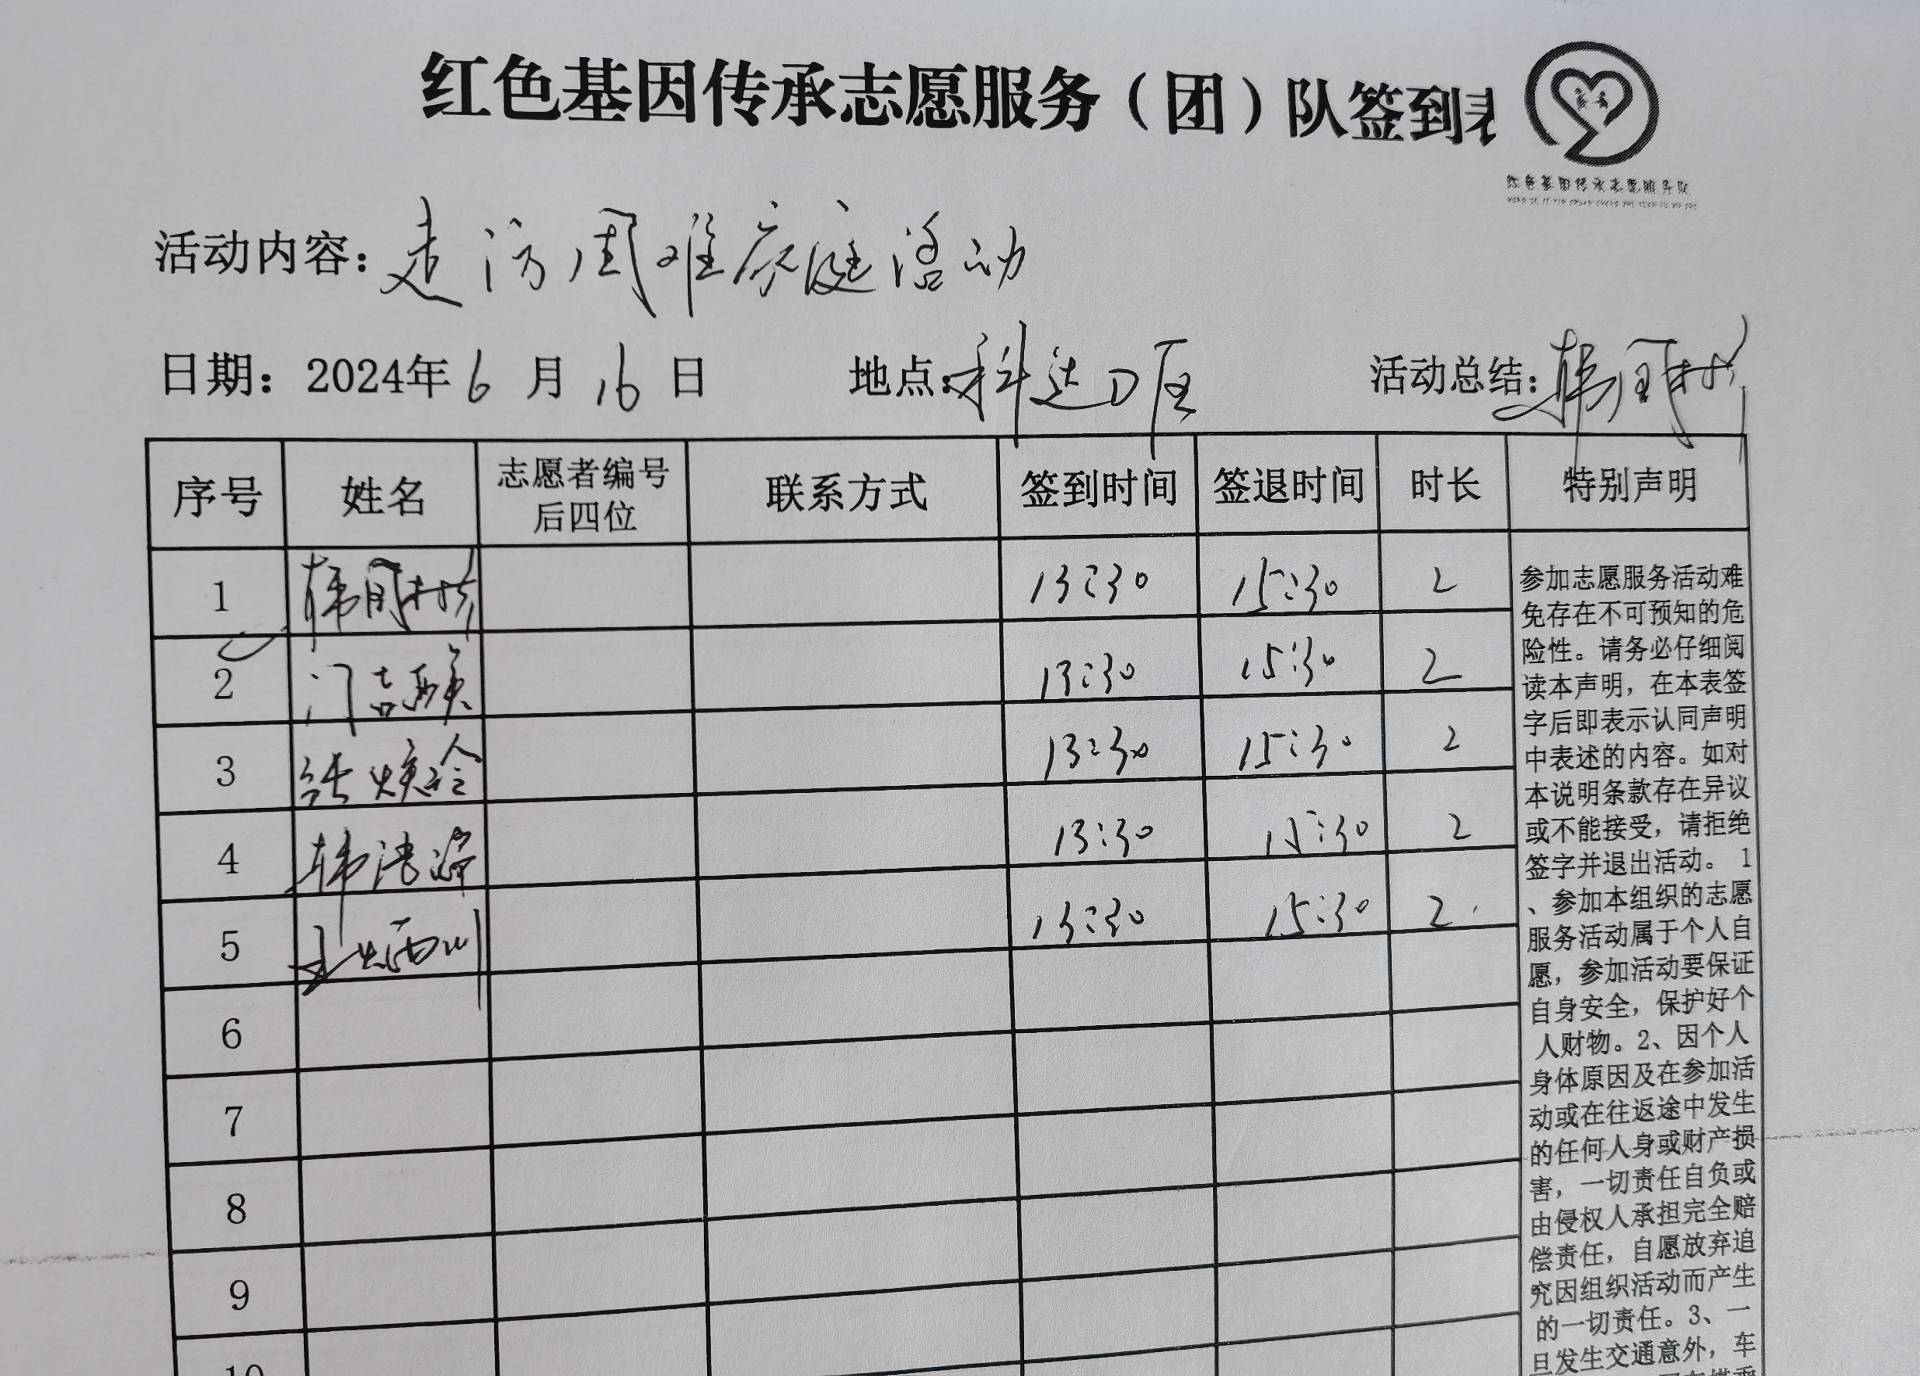 红色基因传承志愿服务（团）队签到表
红色基因传承志愿服务队
活动内容：走访困难家庭活动
日期：2024年6月16日 地点： 活动总结：韩周
序号 姓名 志愿者编号后四位 联系方式 签到时间 签退时间 时长 特别声明
1 韩周 13:30 15:30 2
2 门吉 13:30 15:30 2
3 张焕玲 13:30 15:30 2
4 韩 13:30 15:30 2
5 13:30 15:30 2
6
7
8
9
10
参加志愿服务活动难
免存在不可预知的危
险性。请务必仔细阅
读本声明，在本表签
字后即表示认同声明
中表述的内容。如对
本说明条款存在异议
或不能接受，请拒绝
签字并退出活动。1
、参加本组织的志愿
服务活动属于个人自
愿，参加活动要保证
自身安全，保护好个
人财物。2、因个人
身体原因及在参加活
动或在往返途中发生
的任何人身或财产损
害，一切责任自负或
由侵权人承担完全赔
偿责任，自愿放弃追
究因组织活动而产生
的一切责任。3、一
旦发生交通意外，车